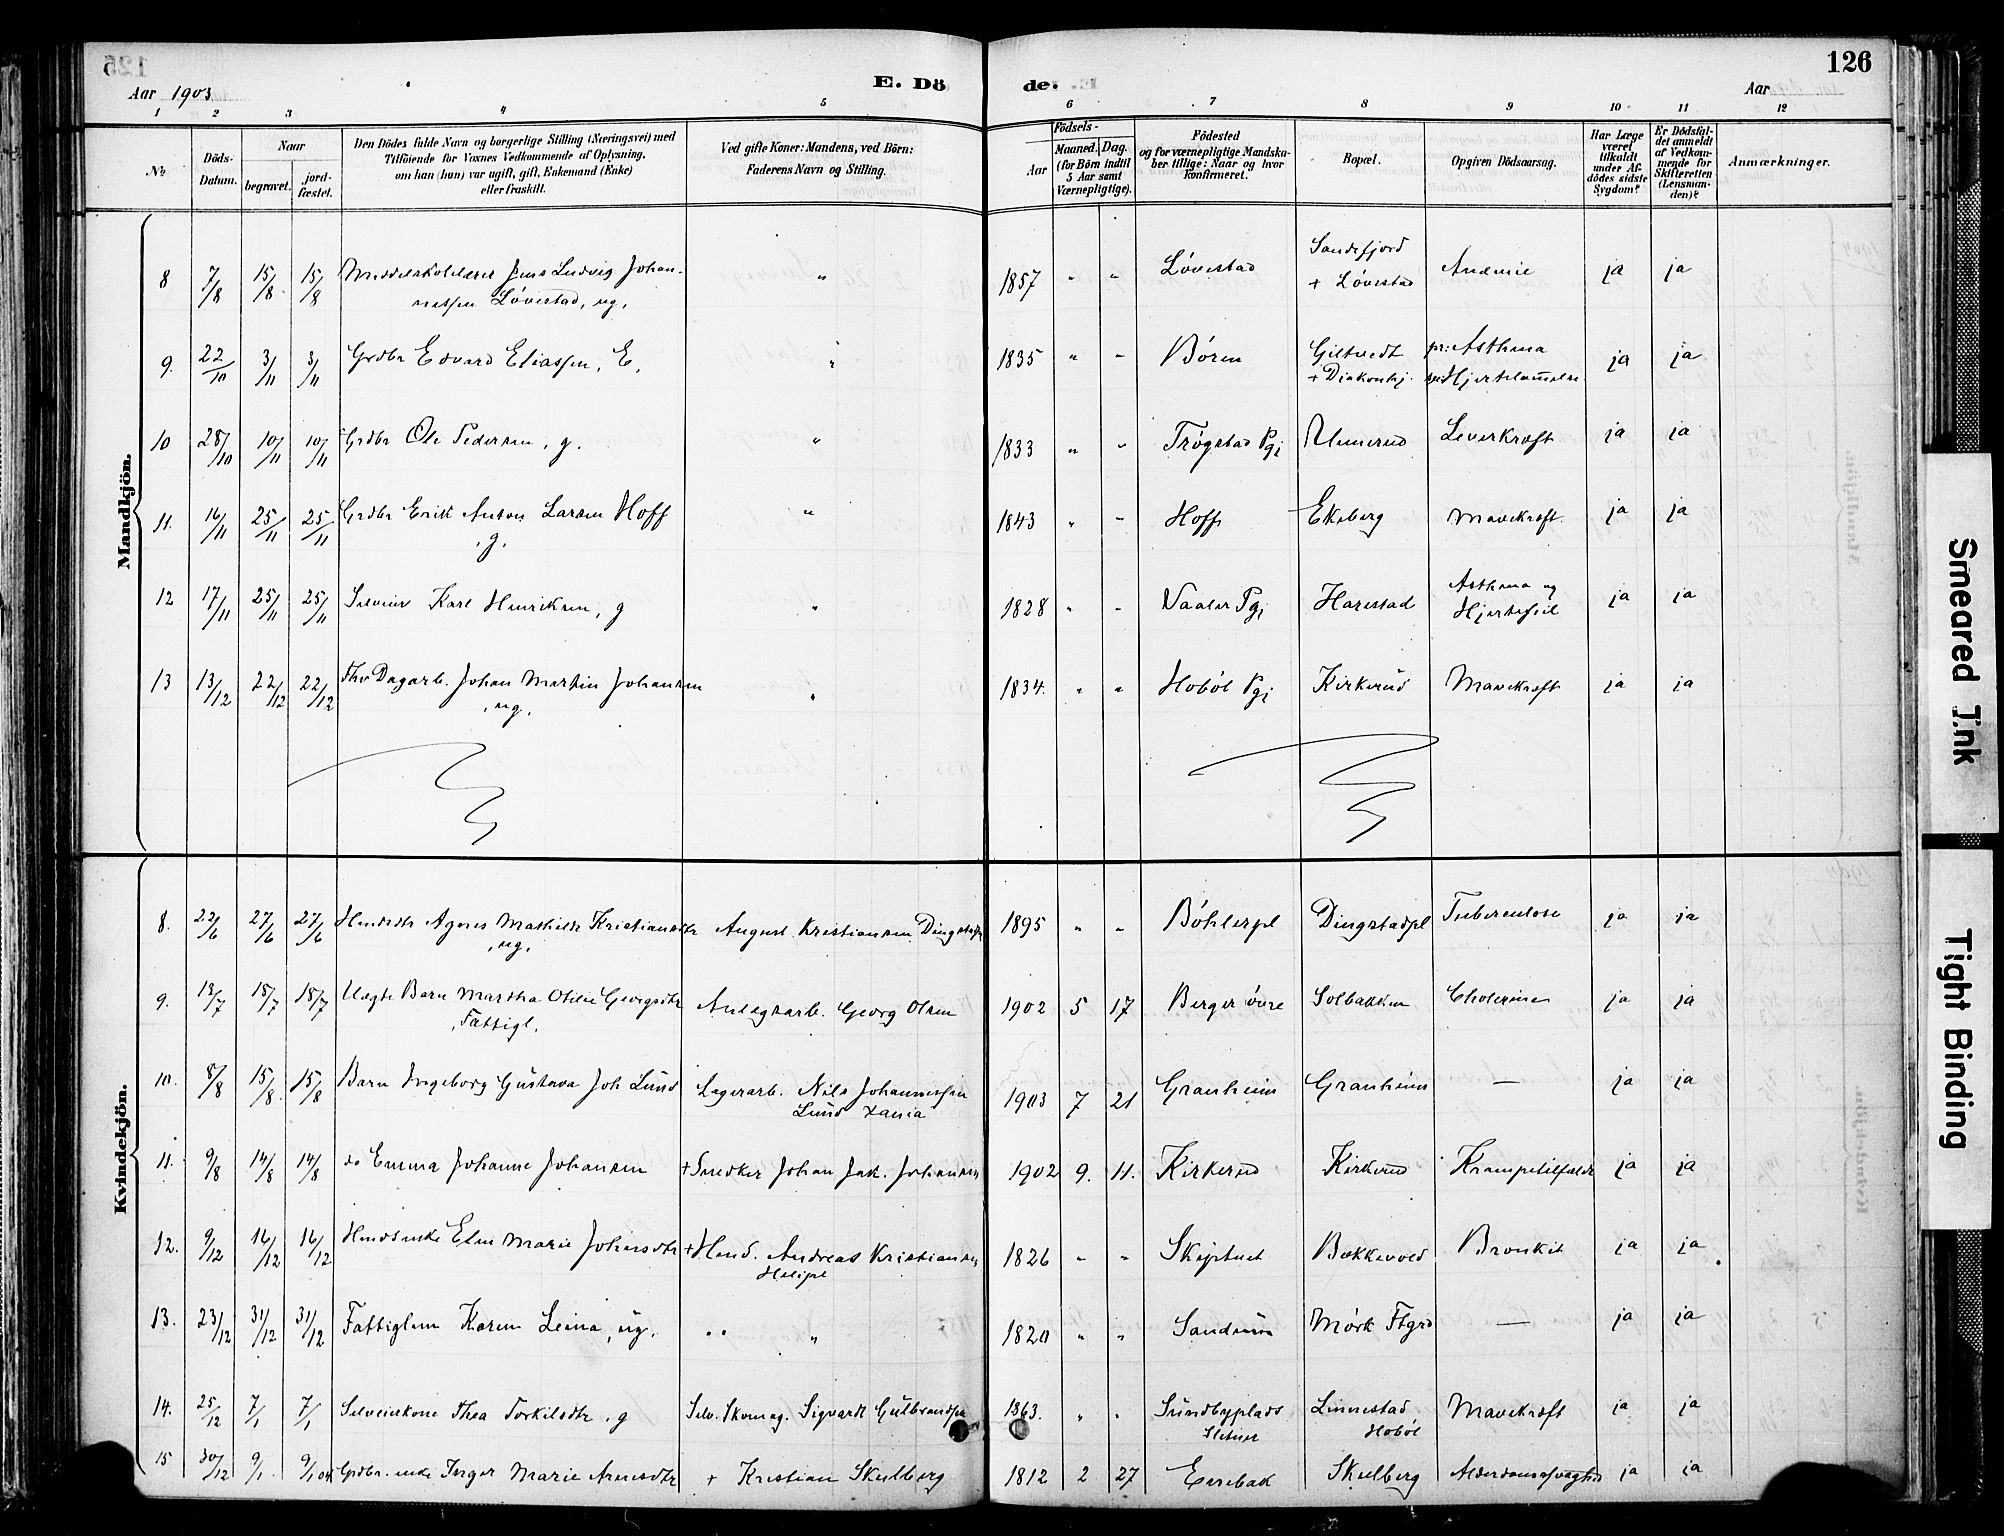 126
Aar 1903
E. Dö
de.
Aar
1 2 3 4 5 6 7 8 9 10 11 12
No.
Döds-Datum.
Naar
begravet.
jord-fæstet.
Den Dödes fulde Navn og borgerlige Stilling (Næringsvei) med
Tilföiende for Voxnes Vedkommende af Oplysning,
om han (hun) var ugift, gift, Enkemand (Enke)
eller fraskilt.
Ved gifte Koner: Mandens, ved Börn:
Faderens Navn og Stilling.
Födsels-
Aar
Maaned. Dag.
(for Börn indtil
5 Aar samt
Værnepligtige).
Födested
og for værnepligtige Mandska-
ber tillige: Naar og hvor
konfirmeret.
Bopæl.
Opgiven Dödsaarsag.
Har Læge
været
tilkaldt
under Af-
dödes sidste
Sygdom?
Er Dödsfal-
det anmeldt
af Vedkom-
mende for
Skifteretten
(Lensman-
den)?
Anmærkninger.
Mandkjön.
8 7/8 15/8 15/8 Middelskolelærer Jens Ludvig Johan-
nessen Lövestad, ug. " 1857 " " Lövestad Sandefjord
+ Lövestad Anæmie ja ja
9. 22/10 3/11 3/11 Grdbr Edvard Eliassen, E. " 1835 " " Bören Giltvedt
+ Diakonhj. pr: Asthma
Hjertelammelse ja ja
10 28/10 10/11 10/11 Grdbr Ole Pedersen, g. " 1833 " " Trögstad Pgj Unnerud Leverkræft ja ja
11. 16/11 25/11 25/11 Grdbr Erik Anton Larsen Hoff
, g. " 1843 " " Hoff Ekeberg Mavekræft ja ja
12 17/11 25/11 25/11 Selveier Karl Henriksen, g " 1828 " " Vaaler Pgj Harestad Asthma og
Hjertefeil ja ja
13 13/12 22/12 22/12 Fhv Dagarb. Johan Martin Johansen
, ug. " 1834. " " Hoböl Pgj Kirkerud Mavekræft ja ja
Kvindekjön.
8. 22/6 27/6 27/6 Husdtr Agnes Mathilde Kristiansdtr
, ug. August Kristiansen Dingstadpl 1895 " " Böhlerpl Dingstadpl Tuberculose ja ja
9. 13/7 18/7 18/7 Uægte Barn Martha Otilie Georgsdtr
, Fattigl. Anlegsarb. Georg Olsen 1902 5 17 Berger övre Solbakken Cholerine ja ja
10. 8/8 15/8 15/8 Barn Ingeborg Gustava Joh Lund Lagerarb. Nils Johannessen
Lund Xania 1903 7 21 Granheim Granheim — ja ja
11. 9/8 14/8 14/8 do Emma Johanne Johansen + Snedker Johan Jak. Johansen 1902 9. 11. Kirkerud Kirkerud Krampetilfælde ja ja
12. 9/12 16/12 16/12 Husmdsenke Elen Marie Johnsdtr + Husmd. Andreas Kristiansen 1826 " " Skiptvet Bækkevold Bronkit ja ja
13. 23/12 31/12 31/12 Fattiglem Karen Leina, ug. " " 1820 " " Sandum Mörk Ftgrd — ja ja
14. 25/12 7/1 7/1 Selveierkone Thea Torkilsdtr, g Selv. Skomag. Sigvardt Gulbrandsen 1863. " " Sundbyplads
Linnestad
Hoböl Mavekræft ja ja
15 30/12 9/1 9/1 04 Grdbr. enke Inger Marie Arnesdtr + Kristian Skulberg 1812 2 27 Enebak Skulberg Alderdomssvaghed ja ja
Smeared Ink
Tight Binding